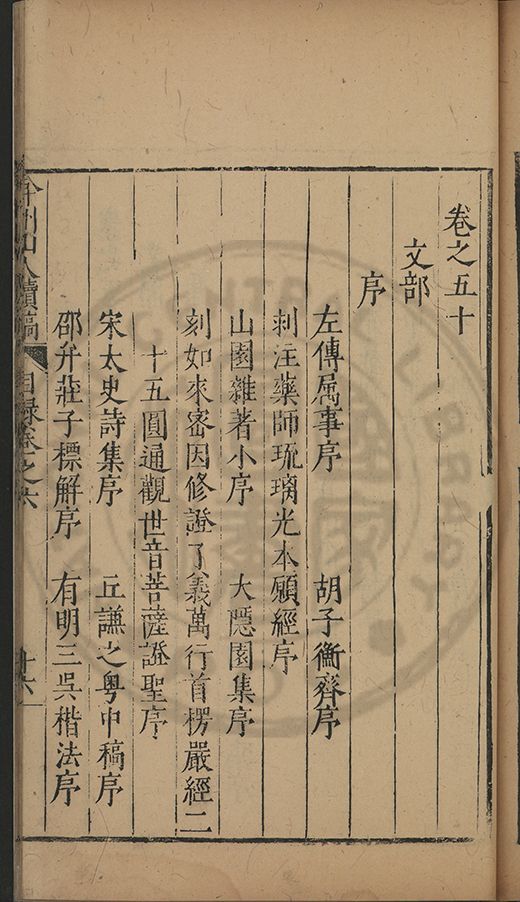 卷之五十
文部
序
左傳属事序　胡子衡齊序
刺注藥師琉璃光本願經序
山園雜著小序　大隱園集序
刻如來密因修證了義萬行首楞嚴經二
十五圓通觀世音菩薩證聖序
宋太史詩集序　丘謙之粤中稿序
邵弁莊子標解序　有明三吳楷法序
弇州山人續稿　目録卷之六　廿六